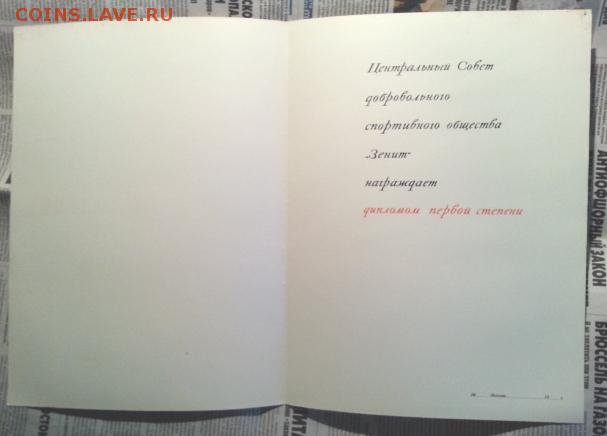 COINS.LAVE.RU
Центральный Совет
добровольного
спортивного общества
„Зенит“
награждает
дипломом первой степени
АНТИОФШОРНЫЙ ЗАКОН
БРЮССЕЛЬ НА ГАЗО